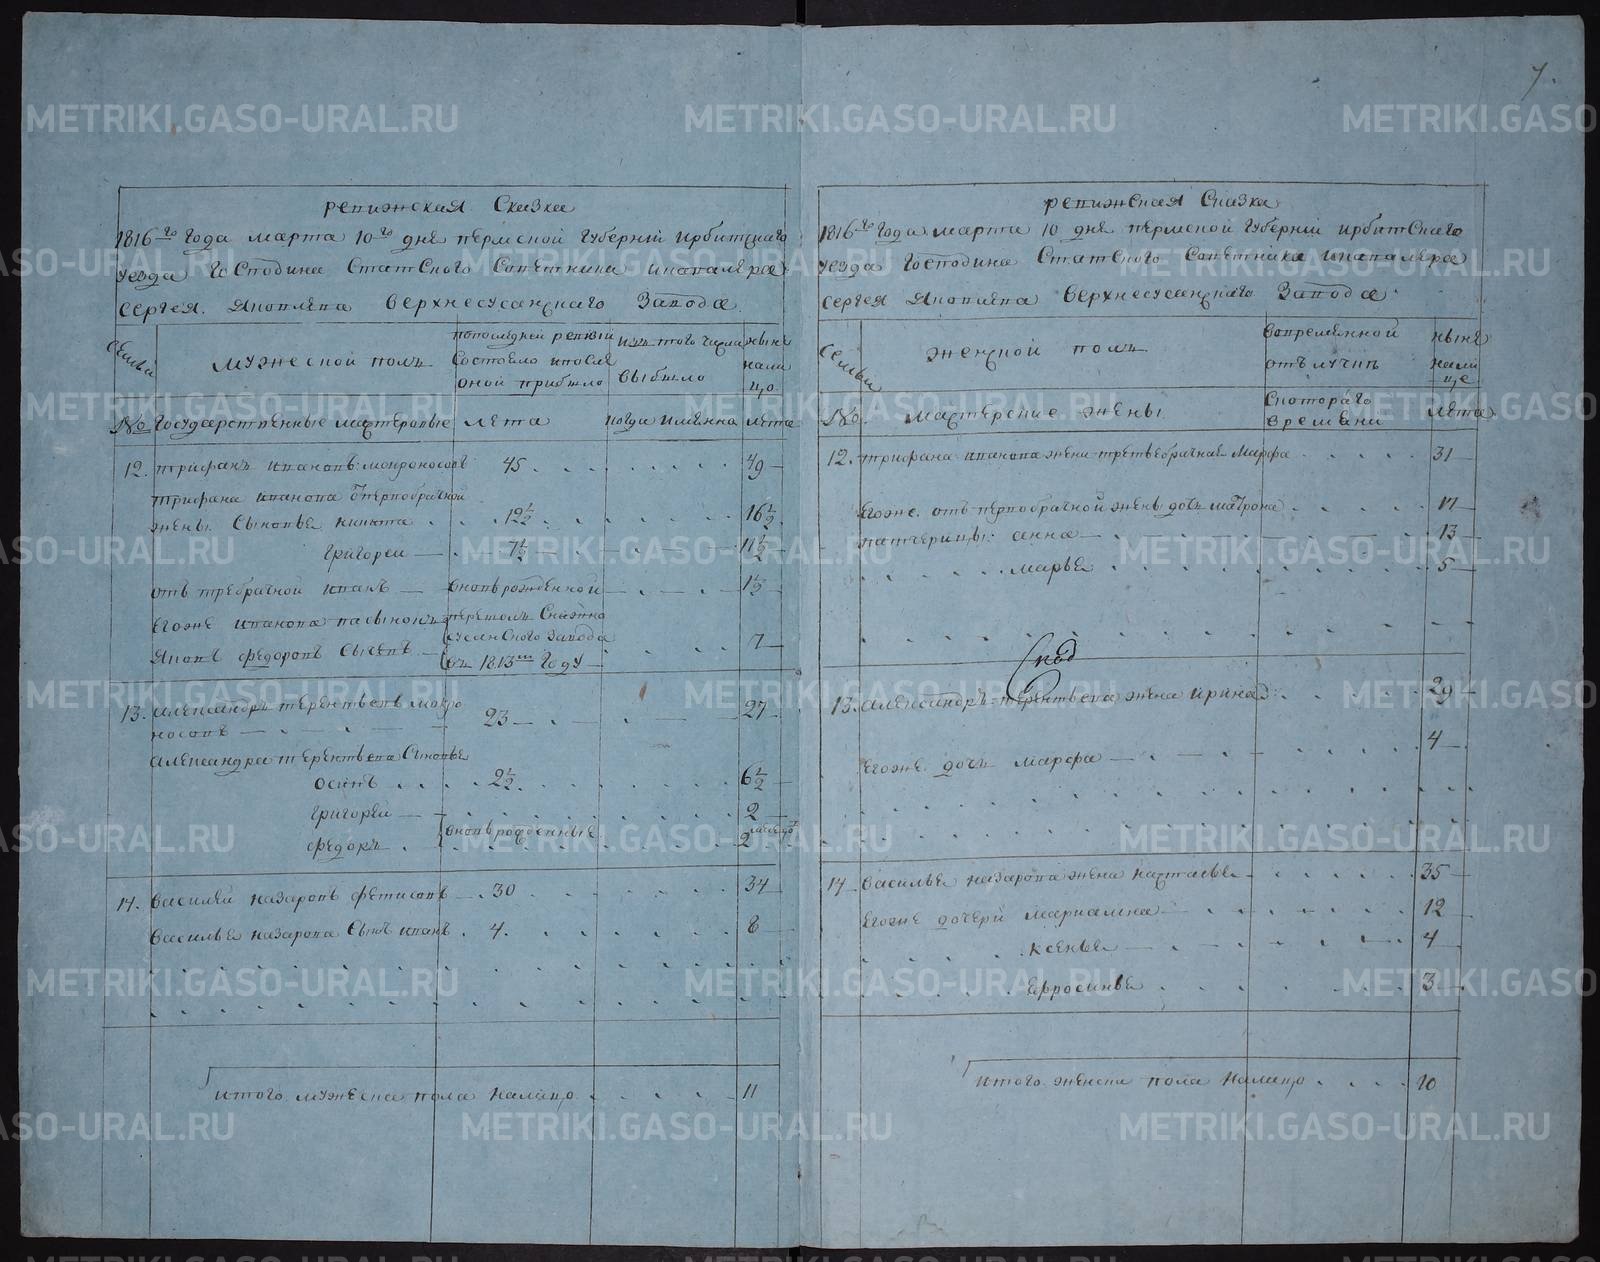 7.
ревижская Сказка
1816го Года марта 10го дня пермской губернiи ирбитскаго
уезда Господина Статского Советника икавалера
Сергея Яковлева верхнесусанскаго Завода
Семьи
мужеской полъ
попоследней ревизiи
состояло ипосле
оной прибыло
изъ того числа
выбыло
ныне
нали
цо.
No Государственные мастеровые
лета
когда имянно
лета
12. трифанъ ивановъ мокроносовъ 45 49
трифана иванова отпервобрачной
жены Сыновья никита 12½ 16½
григореи 7½ 11½
отъ требрачной иванъ вновь рожденной 1½
Егоже иванова пасынокъ
яковъ федоровъ Сысевъ 7
въ 1813м Году
13. александръ терентьевъ мокро
носовъ 23 27
александра терентьева Сыновья
осипъ 2½ 6½
григореи 2
федоръ вновь рожденные 2 месецо
14. василеи назаровъ фетисовъ 30 34
василья назарова Сынъ иванъ 4. 8
итого мужеска пола налицо 11
ревижская Сказка
1816го Года марта 10 дня пермской губернiи ирбитскаго
уезда Господина Статского Советника икавалера
Сергея Яковлева верхнесусанскаго Завода
Семьи
женской полъ
вовременной
отълучке
ныне
нали
це
No. мастерские жены
Скотораго
времени
лета
12. трифана иванова жена третьебрачная Марфа 31
Егоже отъ первобрачной жены дочь матрона 17
патчерицы: анна 13
марья 5
Свод
13. александръ терентьева жена ирина 29
Егоже дочь марфа 4
14 василья назарова жена настасья 35
Егоже дочери мариамна 12
ксенья 4
Ефросинья 3
итого женска пола налицо 10
METRIKI.GASO-URAL.RU